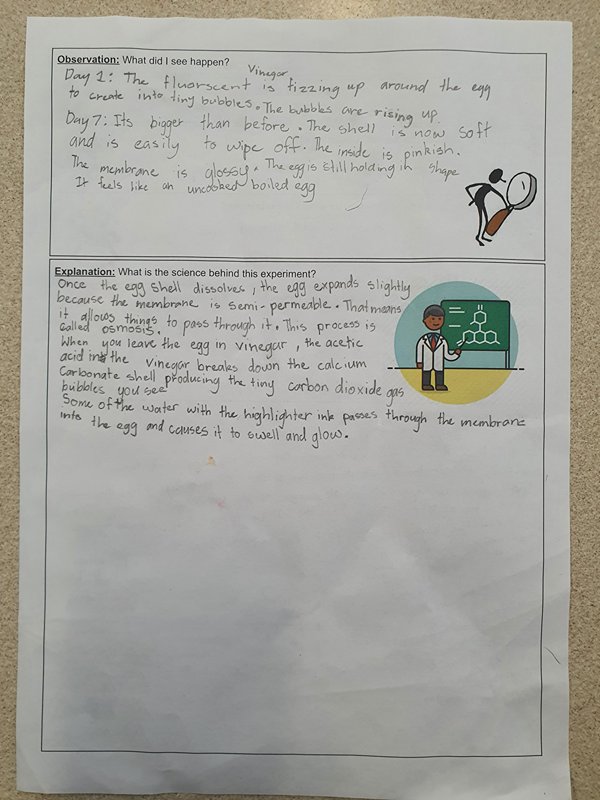 Observation: What did I see happen?
Vinegar
Day 1: The fluorscent is fizzing up around the egg
to create into tiny bubbles. The bubbles are rising up.
Day 7: Its bigger than before. The shell is now soft
and is easily to wipe off. The inside is pinkish.
The membrane is glossy. The egg is still holding in shape
It feels like an uncooked boiled egg
Explanation: What is the science behind this experiment?
Once the egg shell dissolves, the egg expands slightly
because the membrane is semi-permeable. That means
it allows things to pass through it. This process is
called osmosis.
When you leave the egg in vinegar, the acetic
acid in the vinegar breaks down the calcium
carbonate shell producing the tiny carbon dioxide gas
bubbles you see
Some of the water with the highlighter ink passes through the membrane
into the egg and causes it to swell and glow.